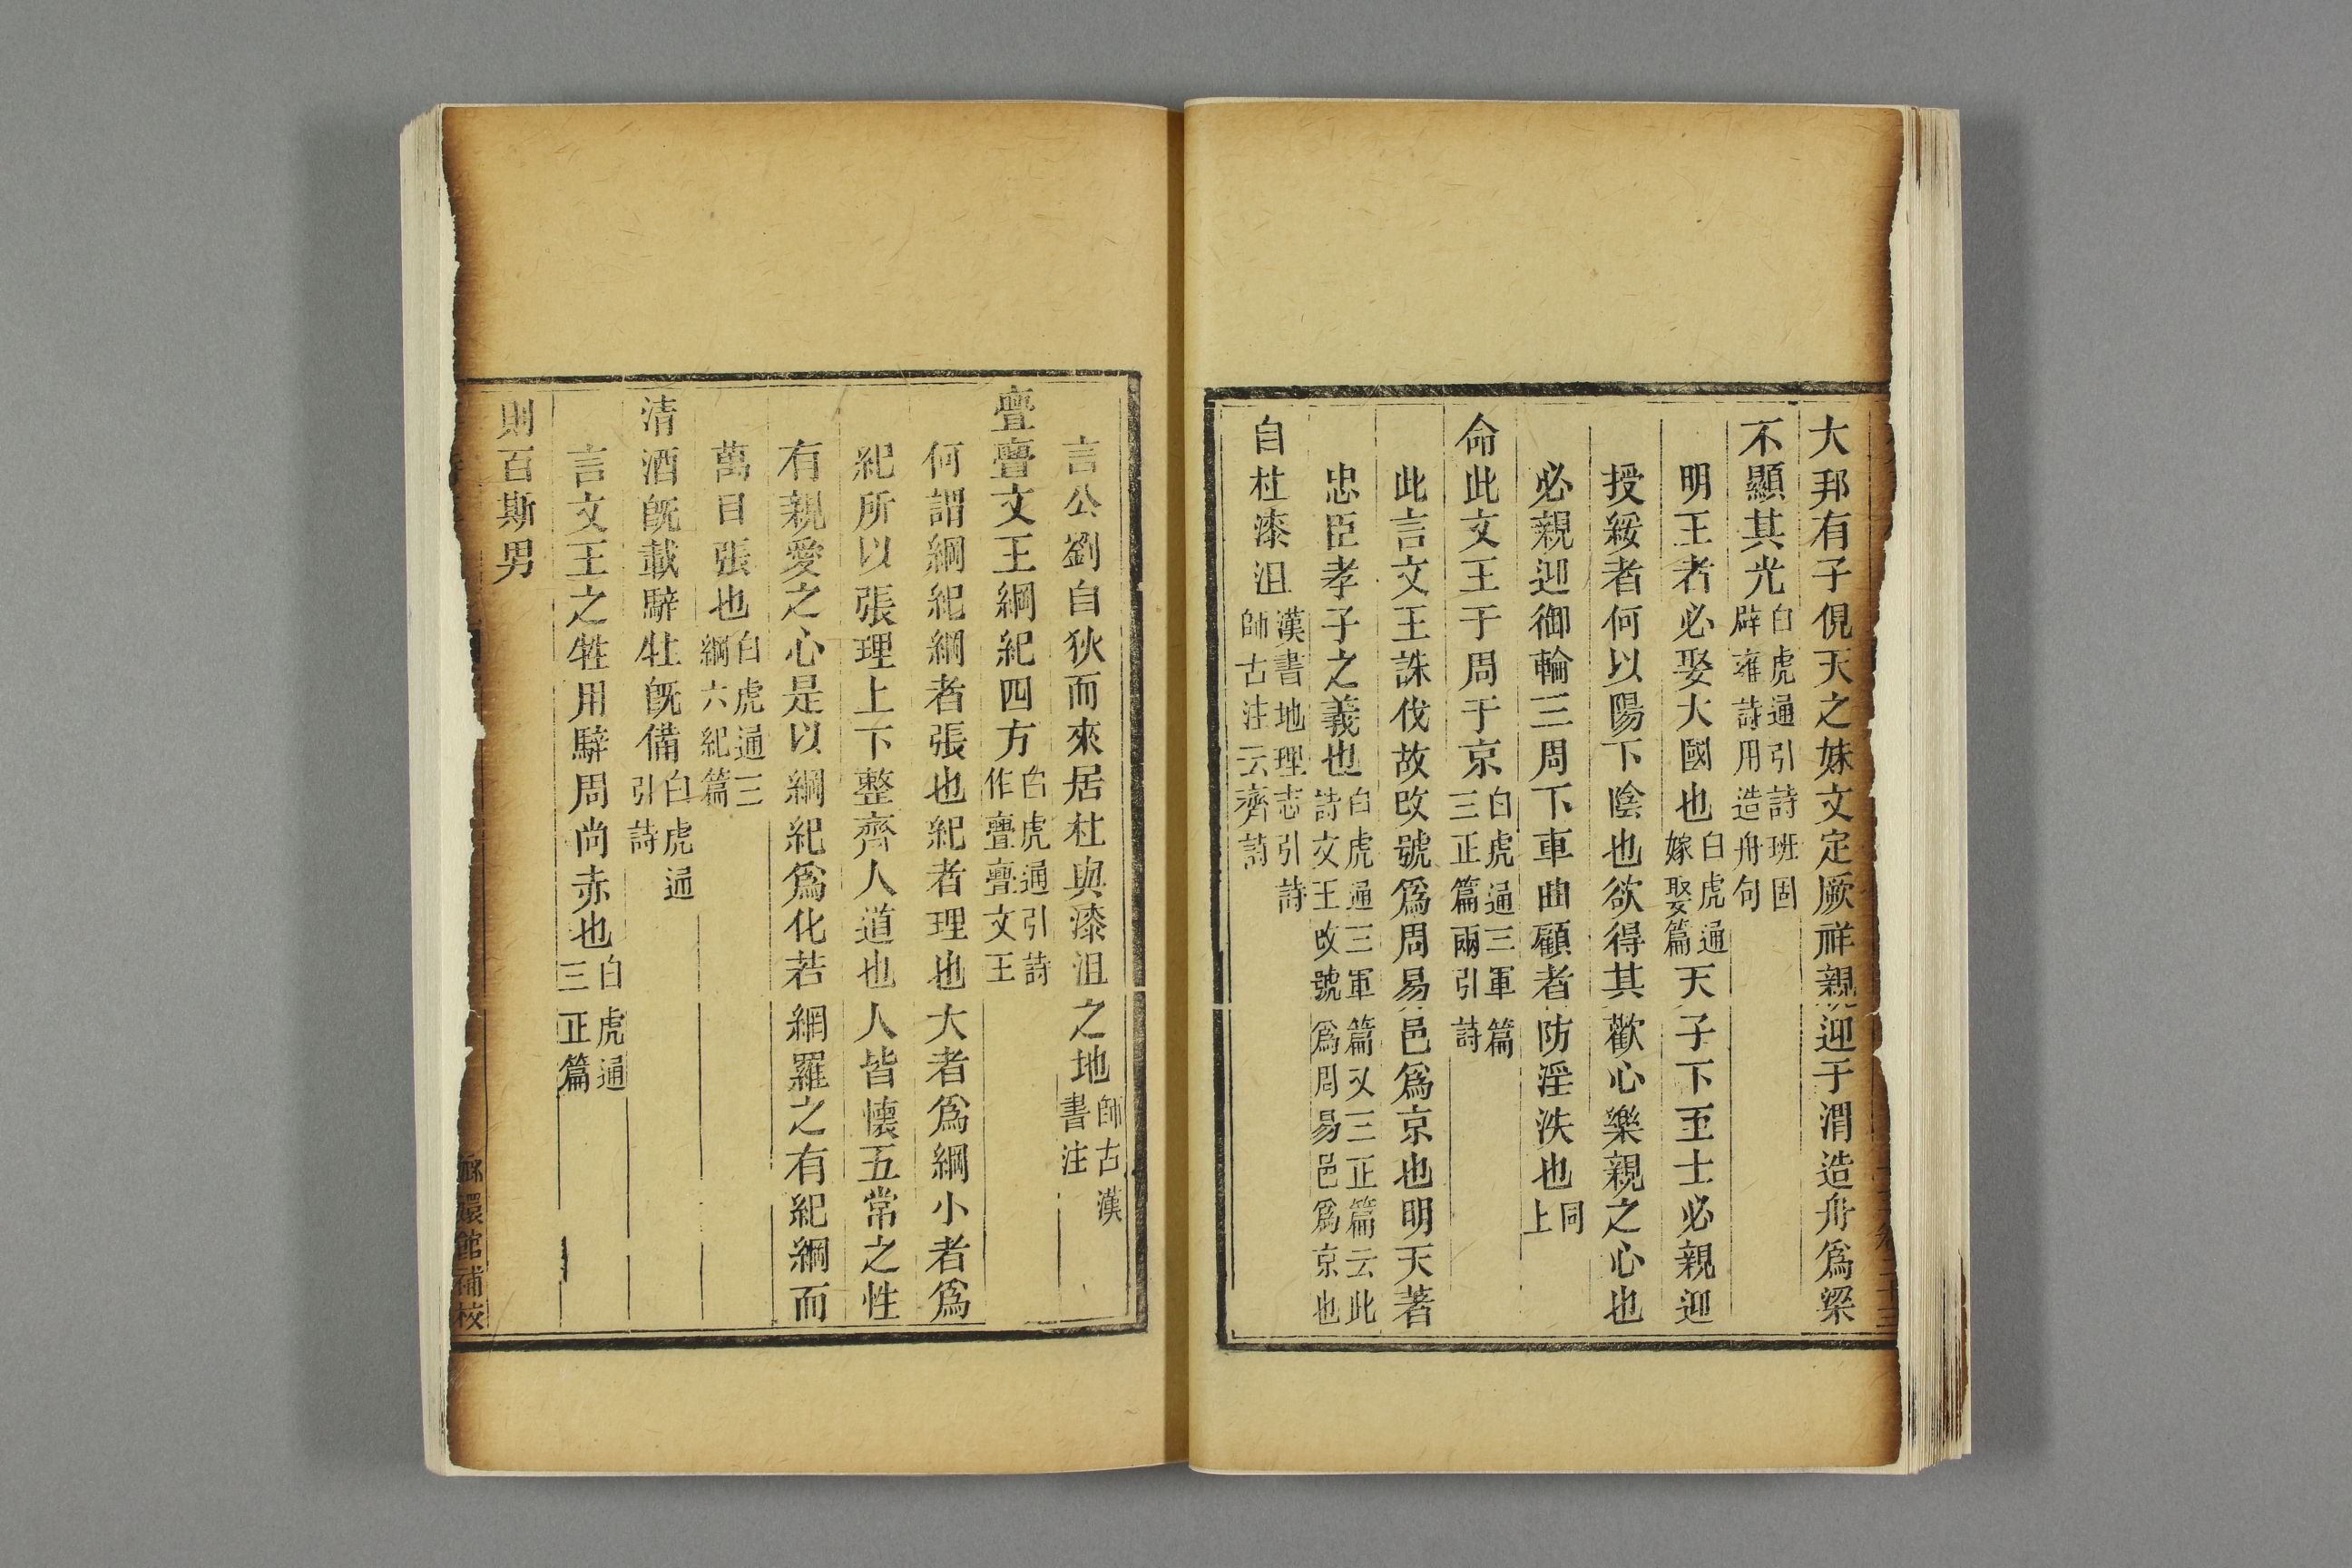 大邦有子俔天之妹文定厥祥親迎于渭造舟爲梁
不顯其光白虎通引詩班固辟雍詩用造舟句
明王者必娶大國也白虎通嫁娶篇天子下至士必親迎
授綏者何以陽下陰也欲得其歡心樂親之心也
必親迎御輪三周下車曲顧者防淫泆也同上
命此文王于周于京白虎通三軍篇三正篇兩引詩
此言文王誅伐故改號爲周易邑爲京也明天著
忠臣孝子之義也白虎通三軍篇又三正篇云此詩文王改號爲周易邑爲京也
自杜漆沮漢書地理志引詩師古注云齊詩
言公劉自狄而來居杜與漆沮之地師古漢書注
亹亹文王綱紀四方白虎通引詩作亹亹文王
何謂綱紀綱者張也紀者理也大者爲綱小者爲
紀所以張理上下整齊人道也人皆懷五常之性
有親愛之心是以綱紀爲化若網羅之有紀綱而
萬目張也白虎通三綱六紀篇
清酒旣載騂牡旣備白虎通引詩
言文王之牲用騂周尚赤也白虎通三正篇
則百斯男
嬛館補校